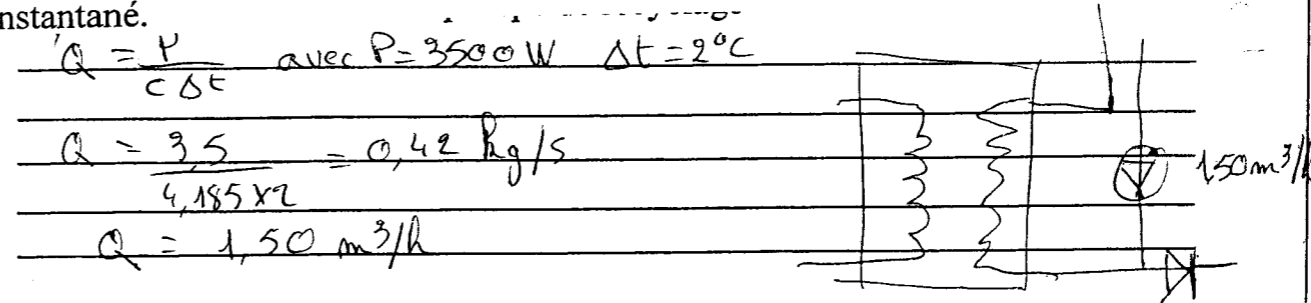 nstantané.
Q = P / c Δt avec P = 3500 W Δt = 2°C
Q = 3,5 / 4,185 x 2 = 0,42 kg/s
1,50 m³/h
Q = 1,50 m³/h